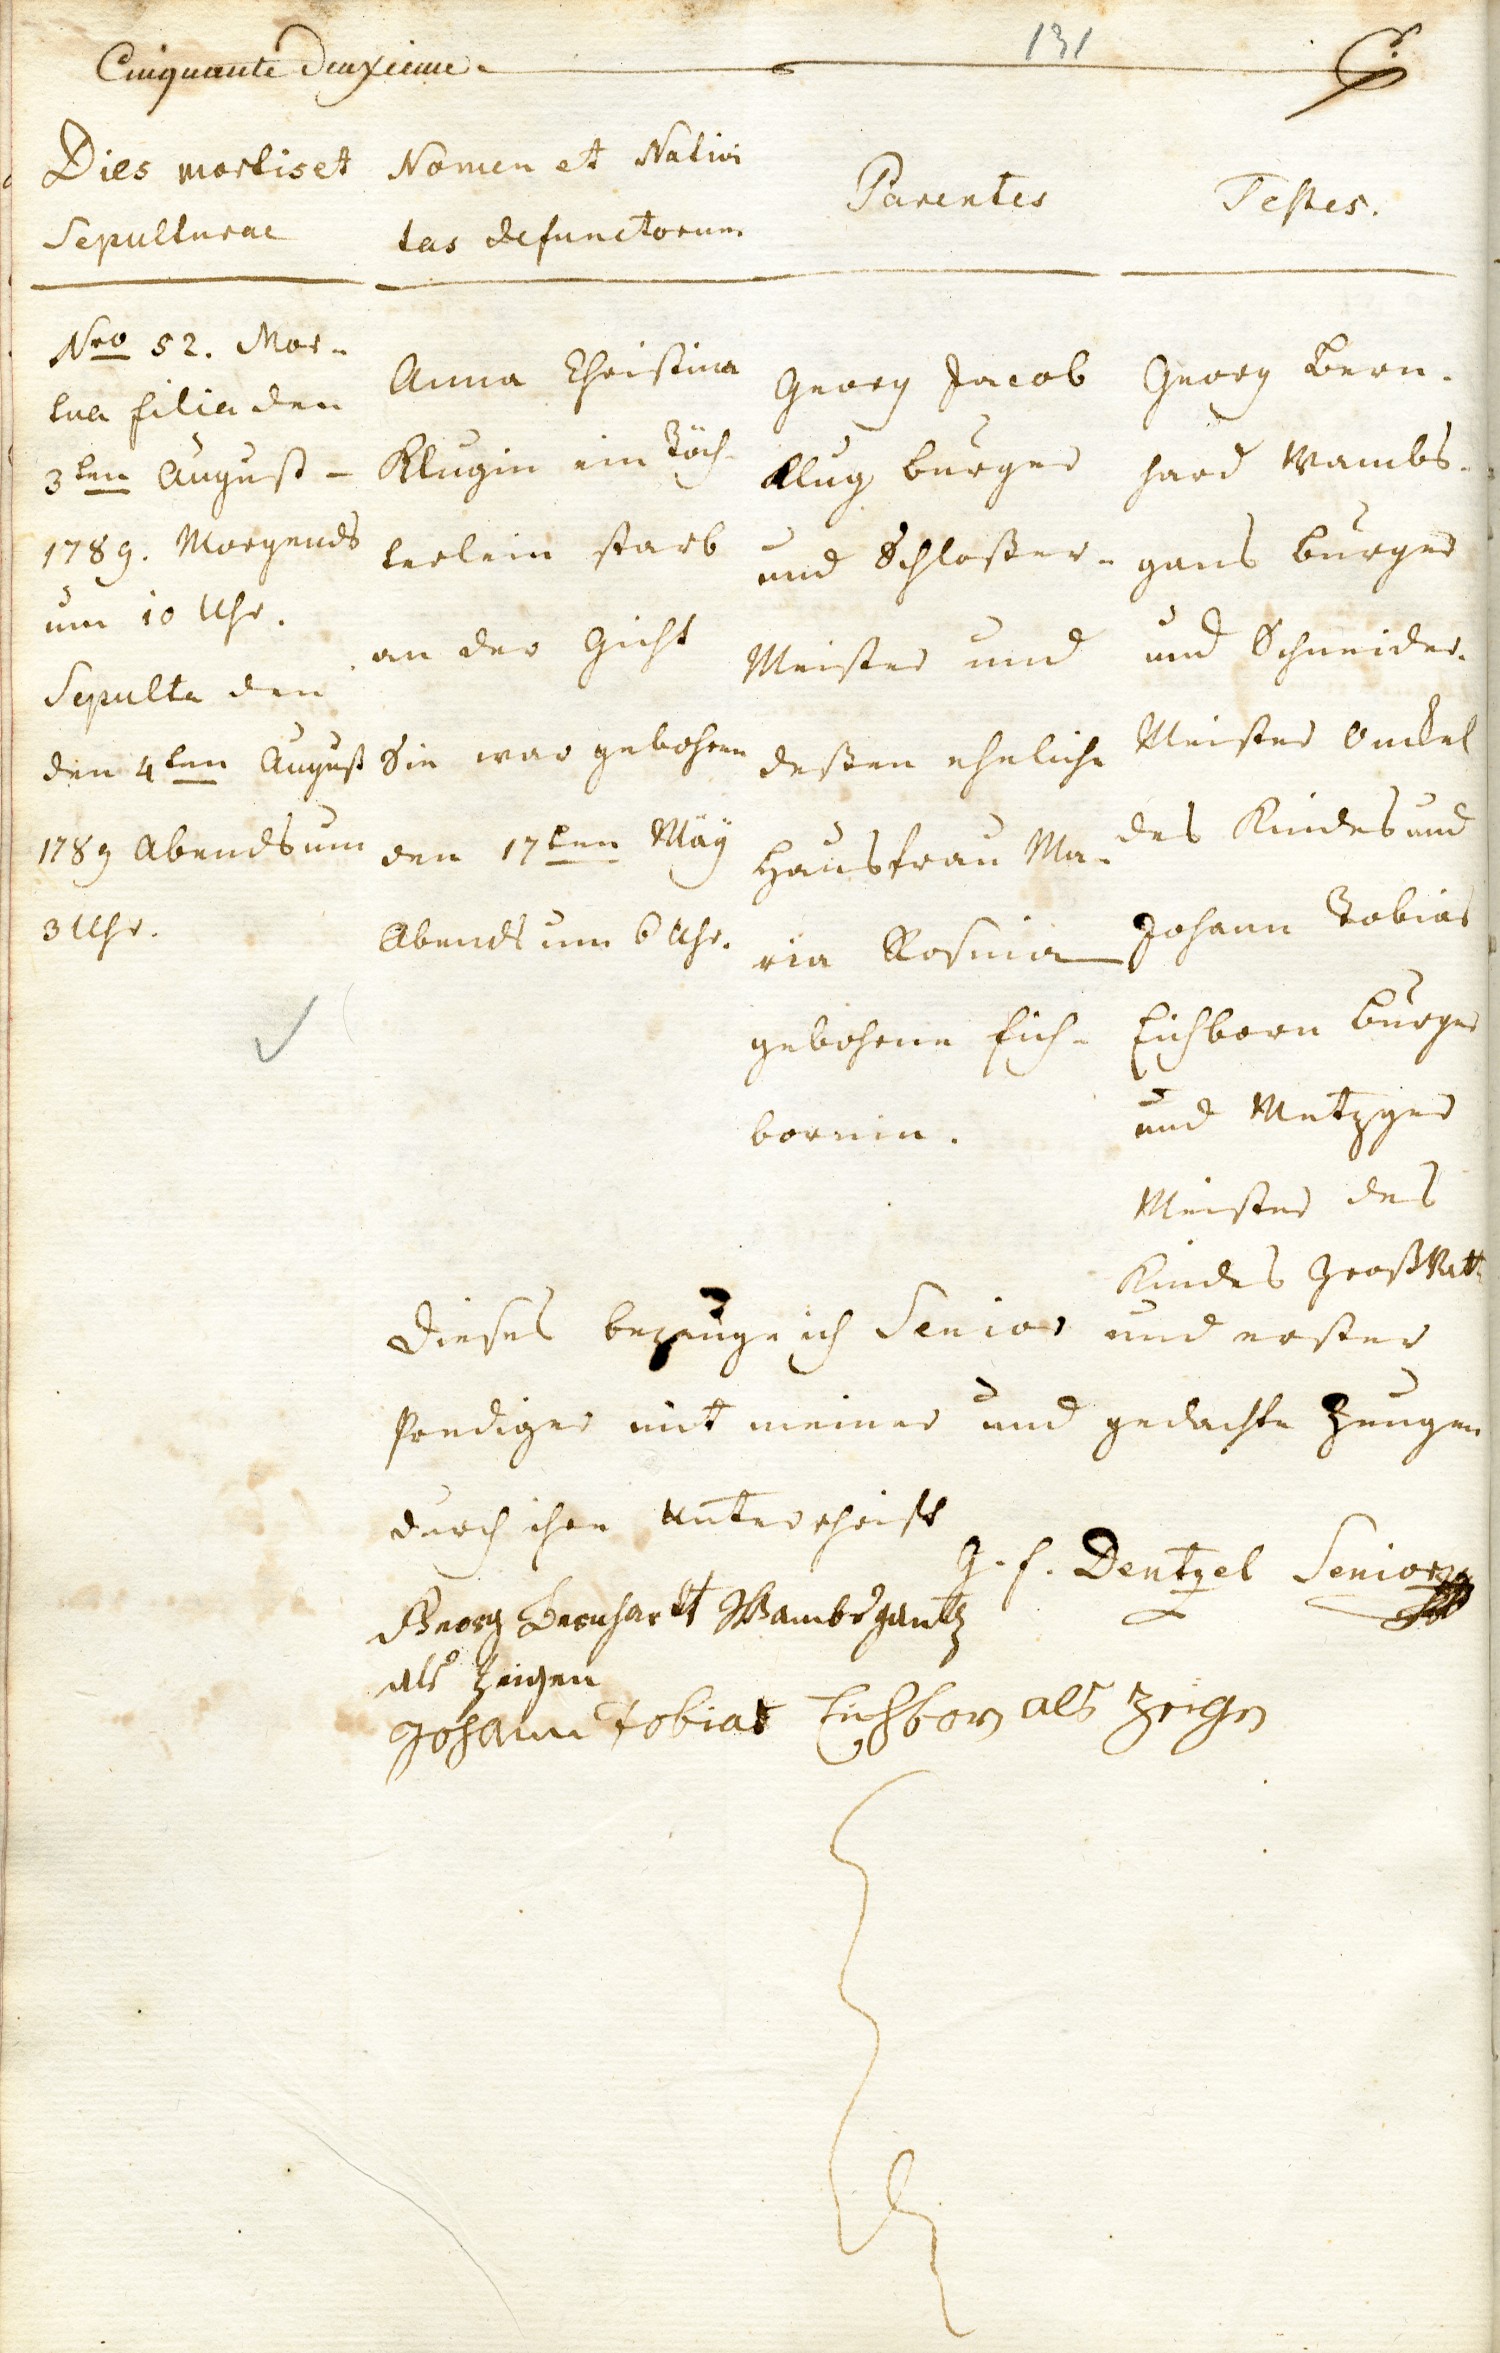 Cinquante Deuxieme
131
Dies mortis et
Sepulturae
Nomen et Nativi
tas defunctorum
Parentes
Testes.
Nro 52. Mor-
tua filia den
3ten August -
1789. Morgends
um 10 Uhr.
Sepulta den
den 4ten August
1789 Abends um
3 Uhr.
Anna Christina
Klugin ein Töch-
terlein starb
an der Gicht
Sie war gebohren
den 17ten Mäÿ
Abends um 6 Uhr.
Georg Jacob
Klug burger
und Schloßer-
Meister und
deßen eheliche
Hausfrau Ma-
ria Rosina
gebohrne Eich-
bornin.
Georg Bern-
hard Wambs-
gans burger
und Schneider-
Meister Onckel
des Kindes und
Johann Tobias
Eichborn burger
und Metzger
Meister des
Kindes Großvatt
Dieses bezeuge ich Senior und erster
Prediger mit meiner und gedachte Zeugen
durch ihre Unterschrift
J. f. Dentzel Senior
Georg Bernhardt Wambsgantz
als Zeigen
Johann Tobias Eichborn als Zeigen